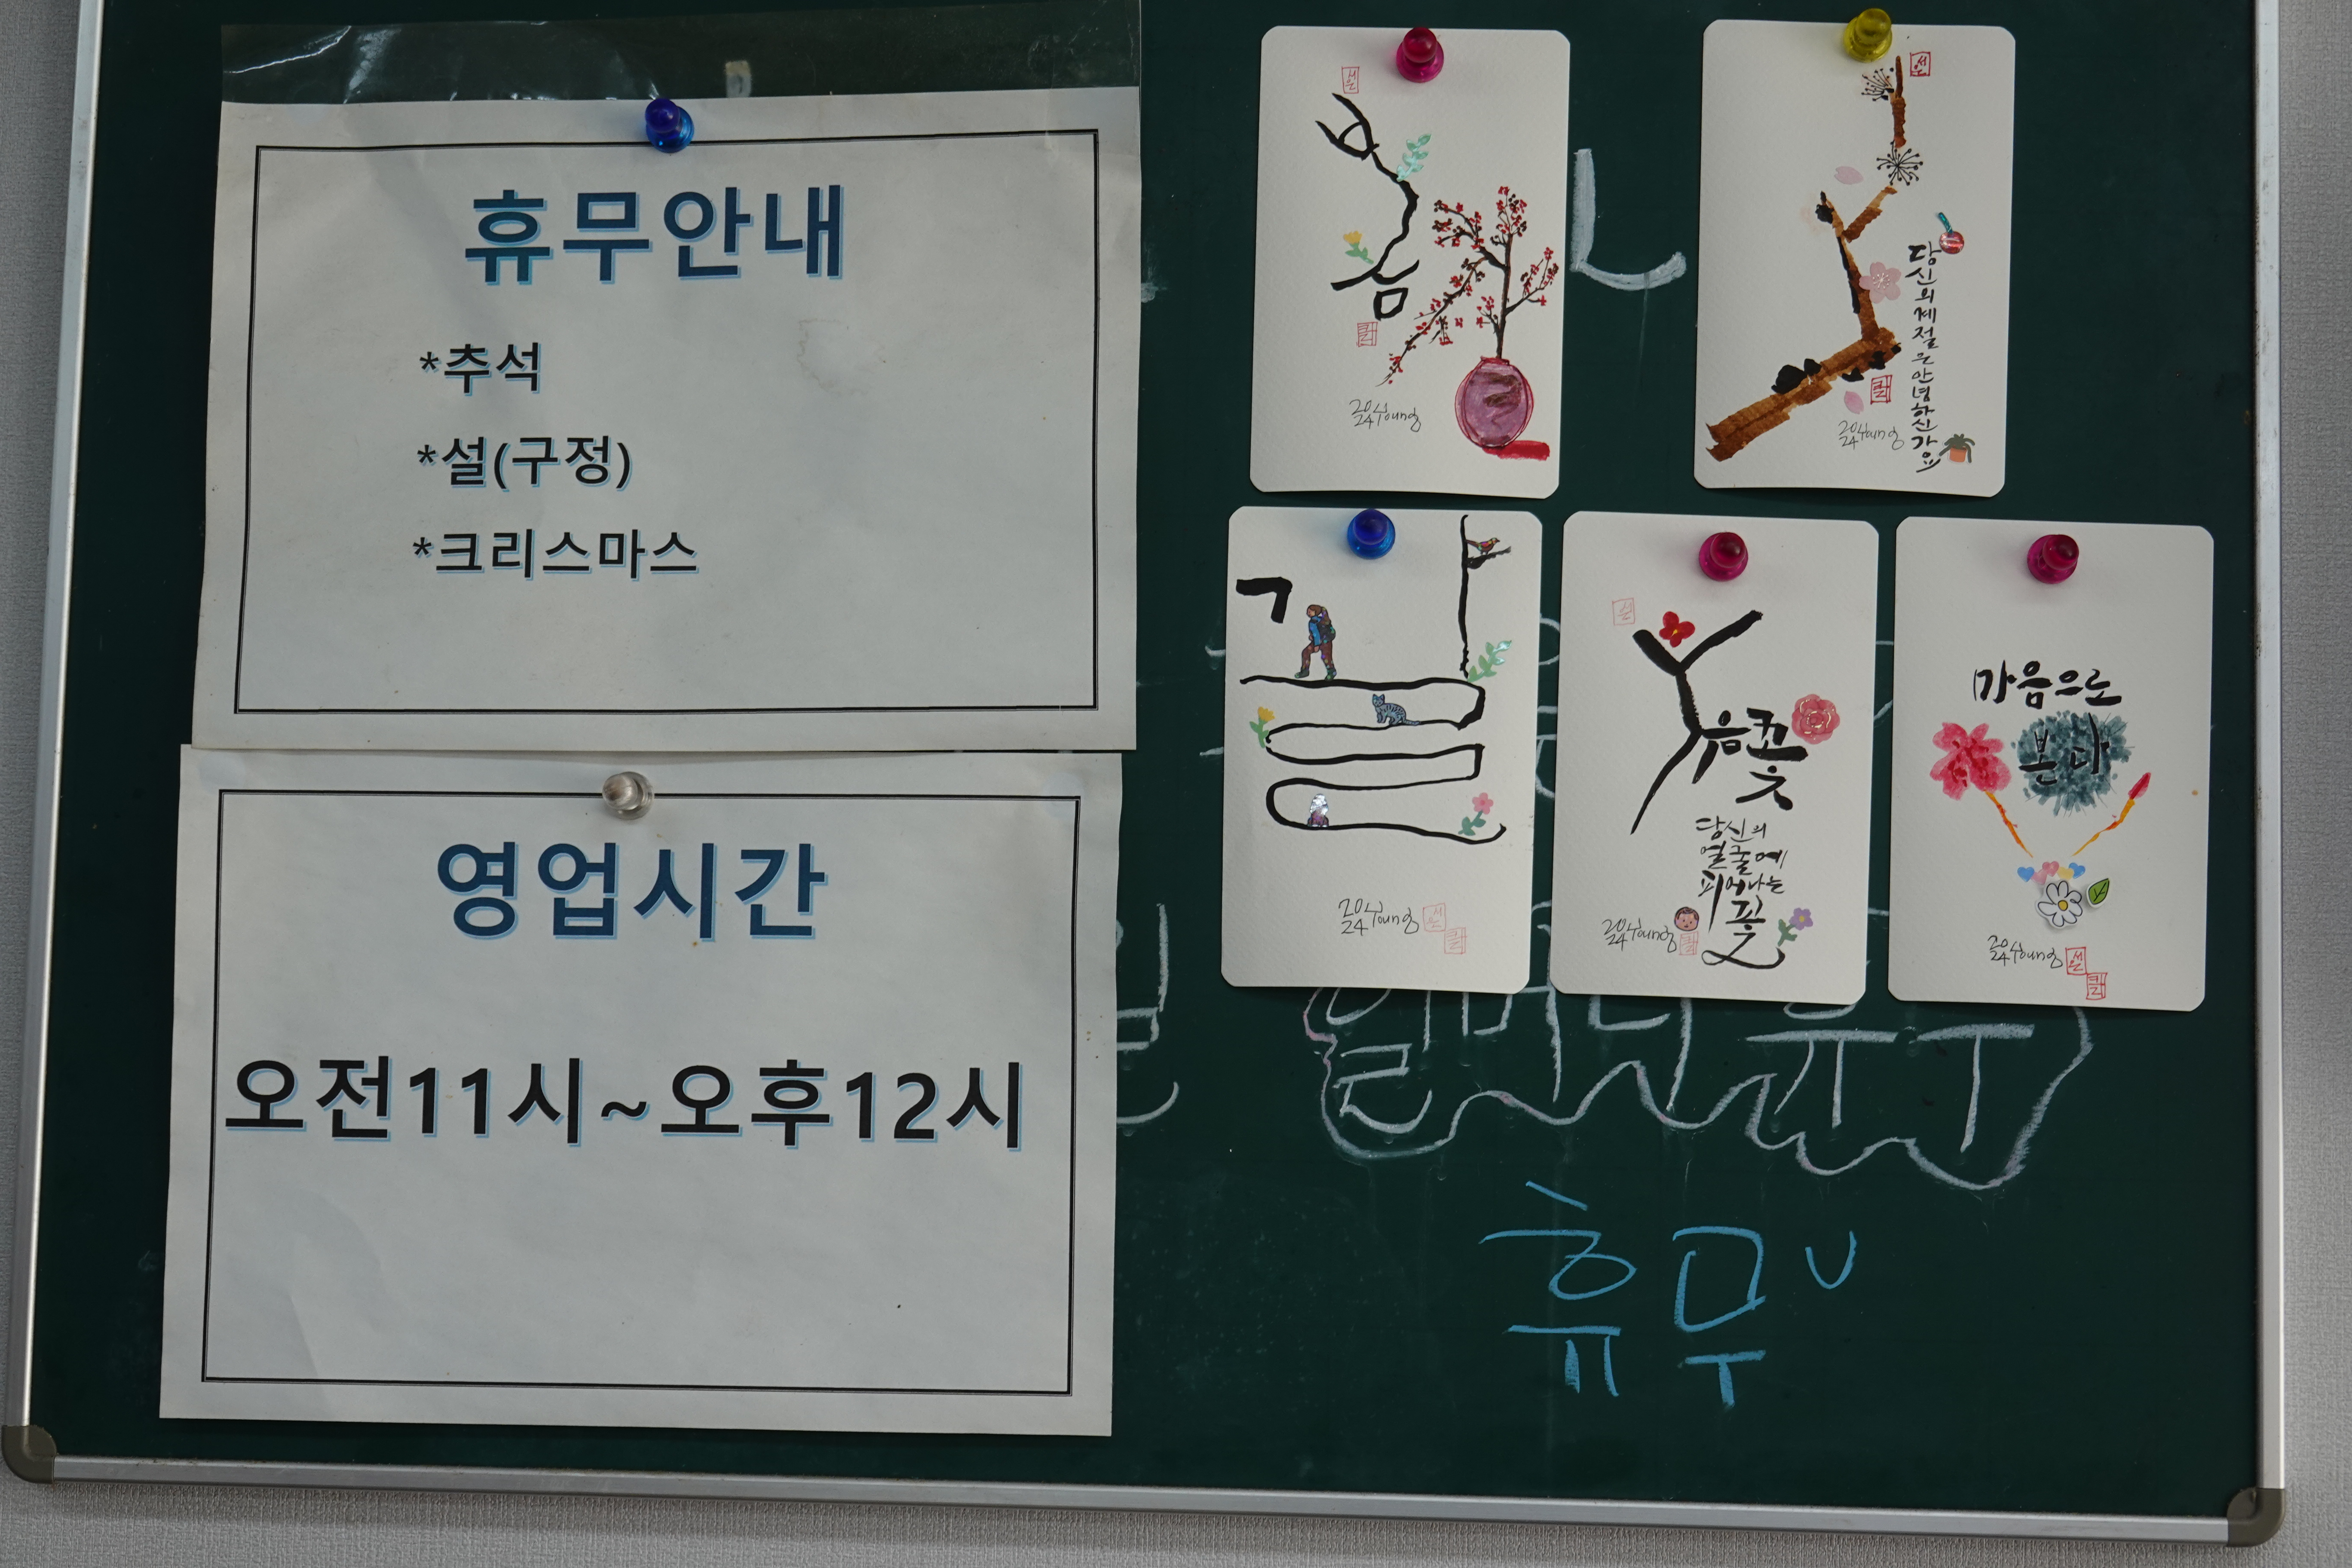 휴무안내
*추석
*설(구정)
*크리스마스
영업시간
오전11시~오후12시
당신의계절은안녕하신가요
2024 young
2024 young
길
2024 young
웃음꽃
당신의
얼굴에
피어나는
꽃
2024 young
마음으로
본다
2024 young
휴무